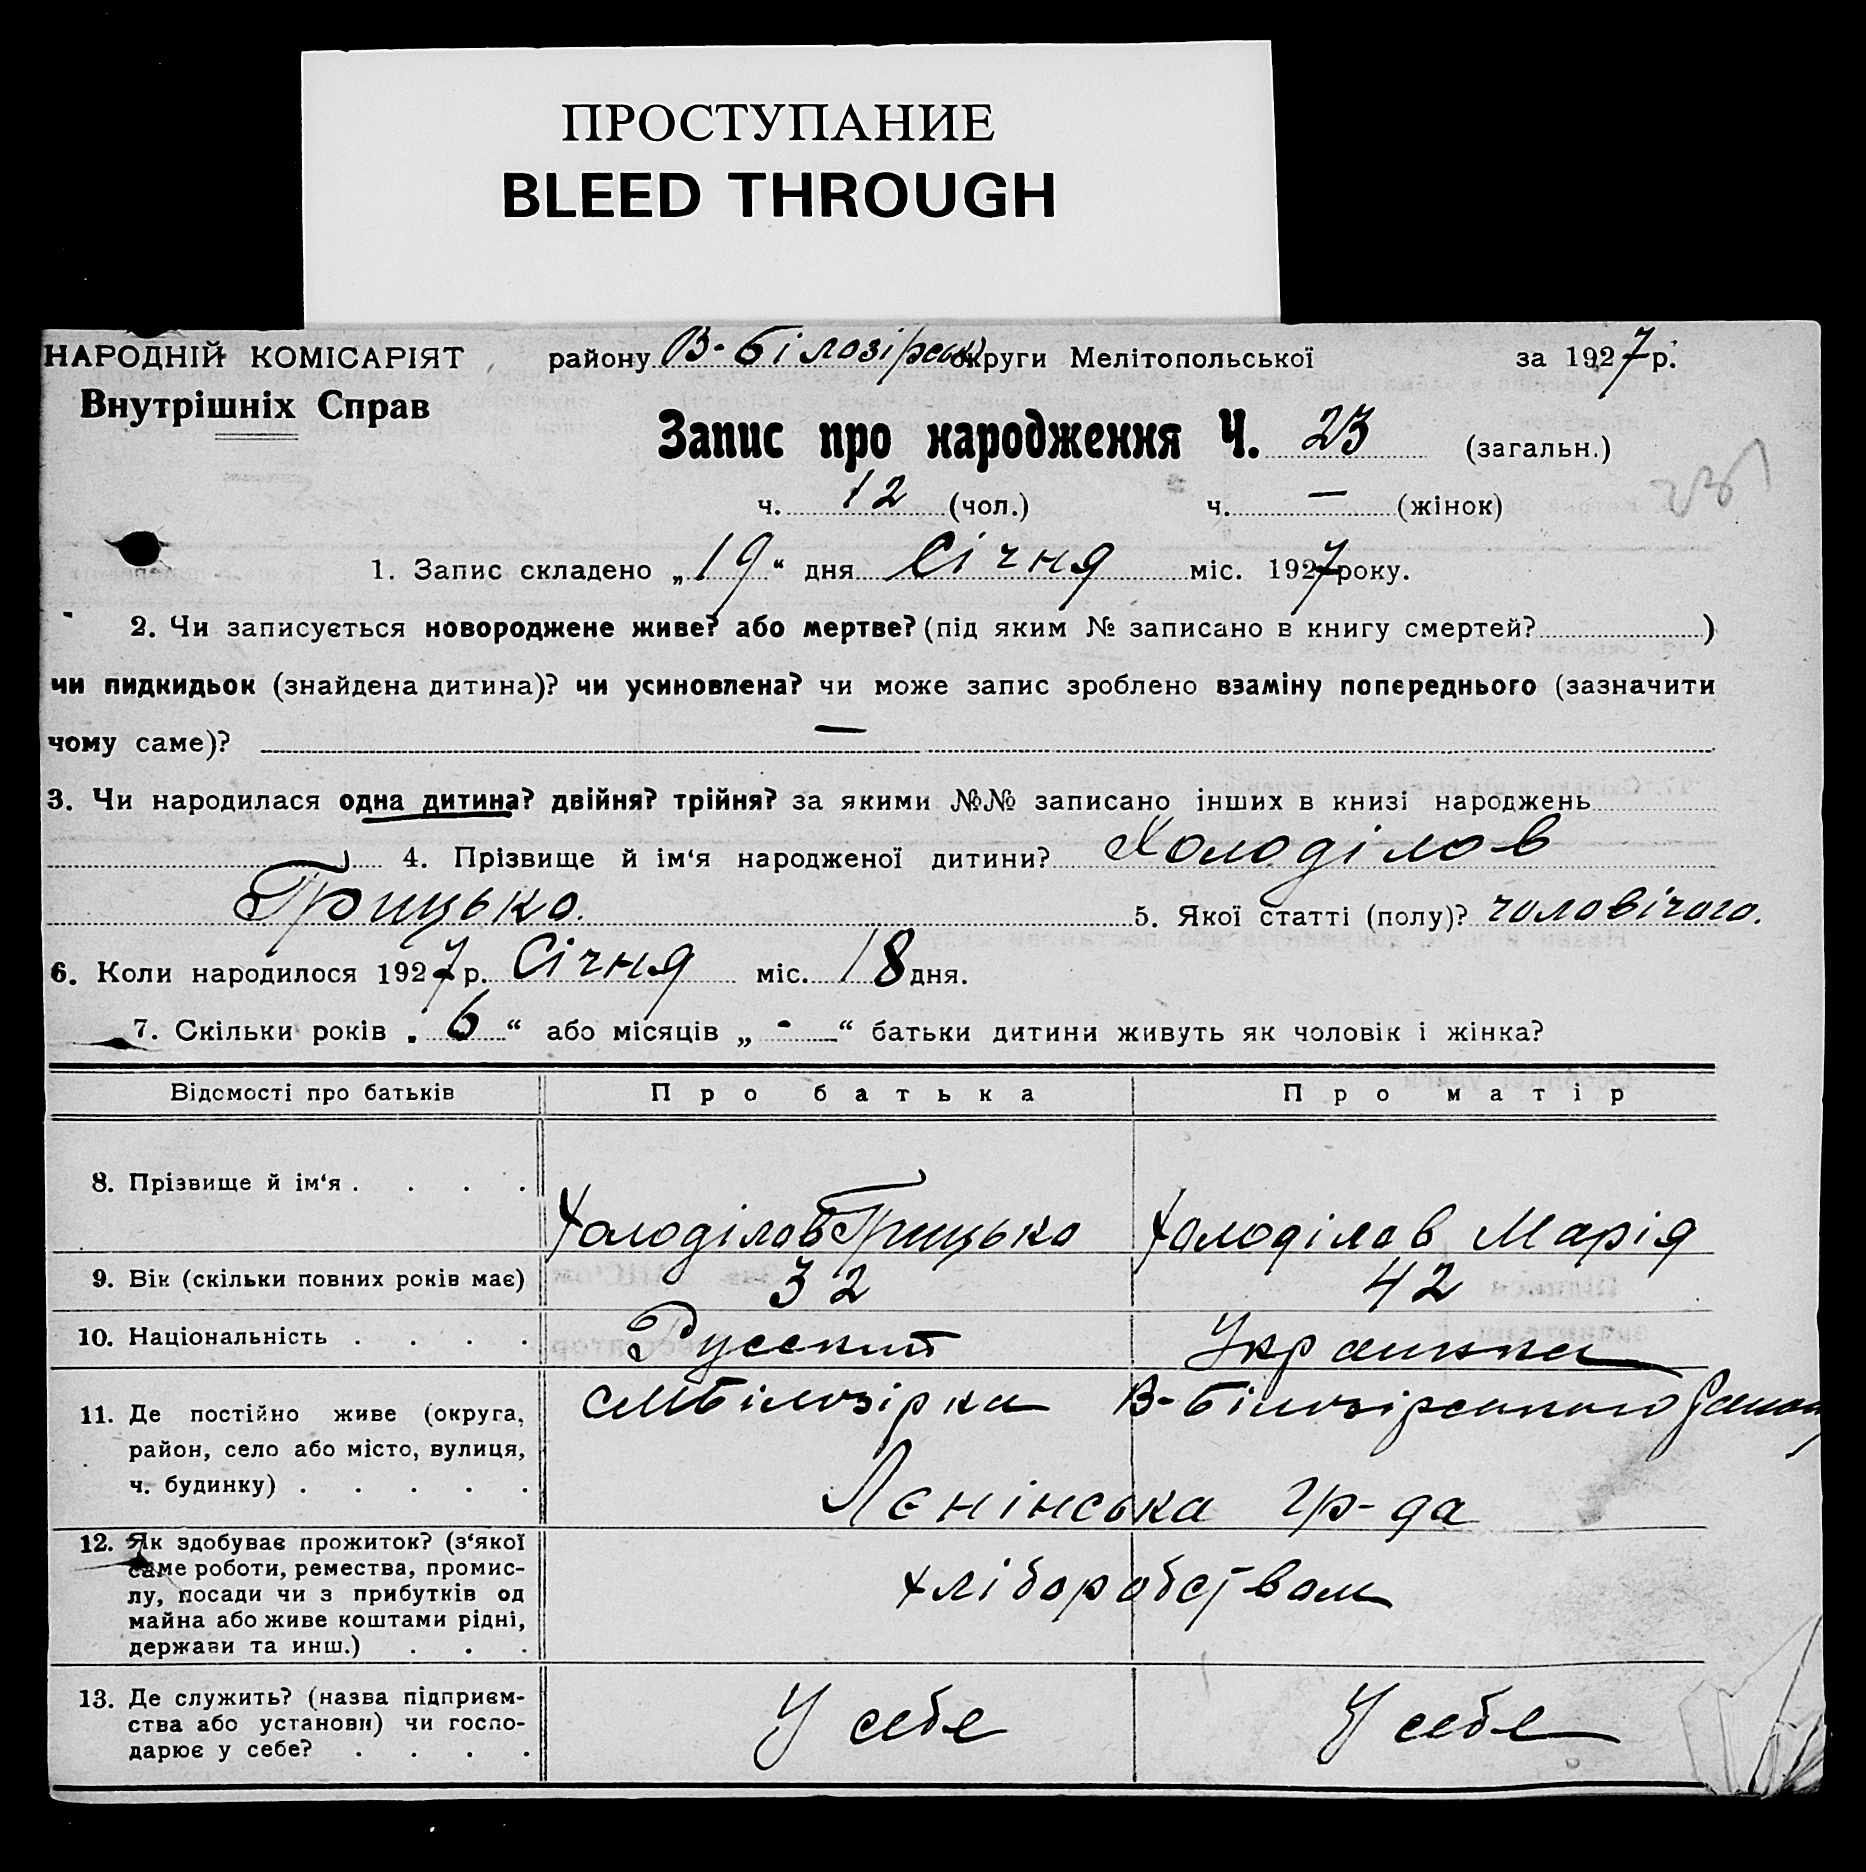 ПРОСТУПАНИЕ
BLEED THROUGH
НАРОДНІЙ КОМІСАРІЯТ району В-Білозірськ округи Мелітопольської за 1927 р.
Внутрішніх Справ
Запис про народження Ч. 23 (загальн.)
23
ч. 12 (чол.) ч. — (жінок)
1. Запис складено „19“ дня Січня міс. 1927 року.
2. Чи записується новороджене живе? або мертве? (під яким № записано в книгу смертей? )
чи пидкидьок (знайдена дитина)? чи усиновлена? чи може запис зроблено взаміну попереднього (зазначити
чому саме)? —
3. Чи народилася одна дитина? двійня? трійня? за якими №№ записано інших в книзі народжень
4. Прізвище й ім‘я народженої дитини? Холоділов
Грицько. 5. Якої статті (полу)? чоловічого.
6. Коли народилося 1927 р. Січня міс. 18 дня.
7. Скільки років „ 6 “ або місяців „ - “ батьки дитини живуть як чоловік і жінка?
Відомості про батьків Про батька Про матір
8. Прізвище й ім‘я . . . . Холоділов Грицько Холоділов Марія
9. Вік (скільки повних років має) 32 42
10. Національність . . . . Русский Украинка
11. Де постійно живе (округа, район, село або місто, вулиця, ч. будинку) . . . . .
Білозірка В-Білозірського
Лєнінська гр-да
12. Як здобуває прожиток? (з‘якої
саме роботи, ремества, промис-
лу, посади чи з прибутків од
майна або живе коштами рідні,
держави та инш.) . . .
хліборобством
13. Де служить? (назва підприєм-
ства або установи) чи госпо-
дарює у себе? . . . .
У себе У себе